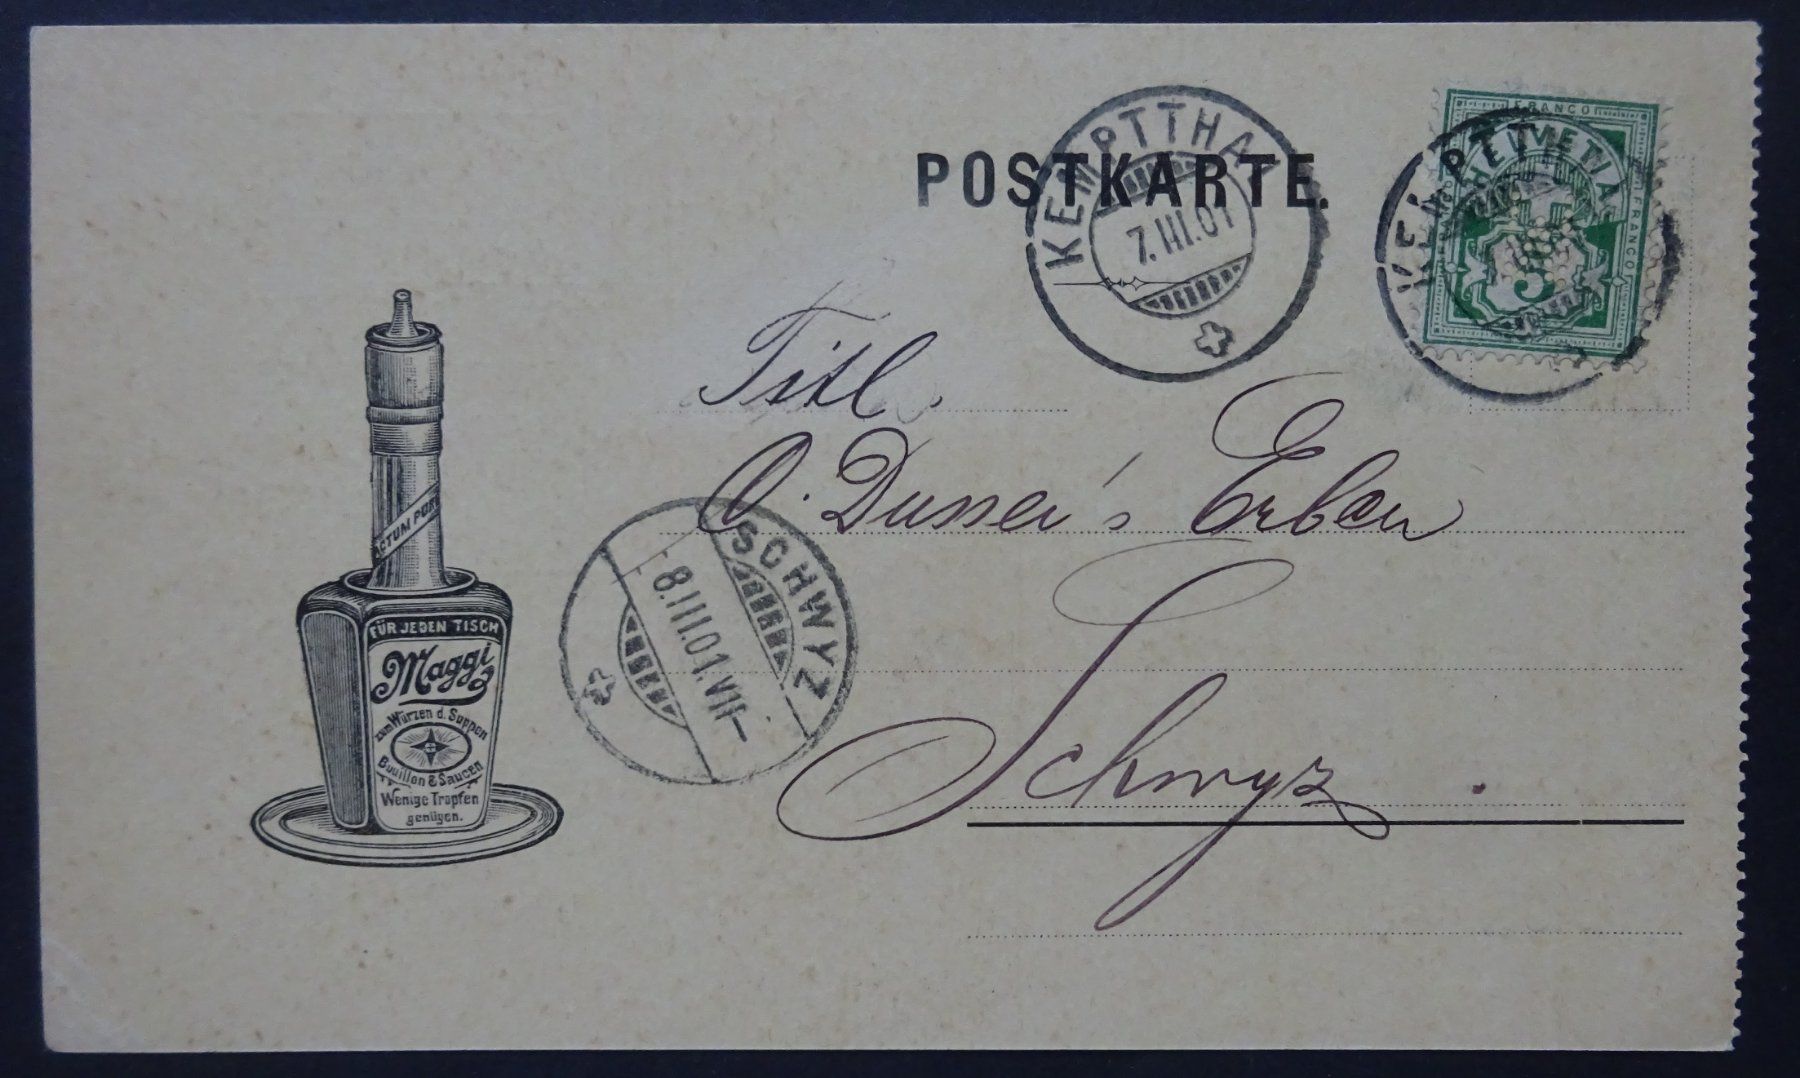 POSTKARTE.
KEMPTTHAL
7.III.01
FRANCO
HELVETIA
FRANCO
5
KEMPTTHAL
Titl.
O. Dusser's Erben
Schwyz.
SCHWYZ
8.III.01.VII-
ACTUM POR
FÜR JEDEN TISCH
Maggi
zum Würzen d. Suppen
Bouillon & Saucen
Wenige Tropfen
genügen.